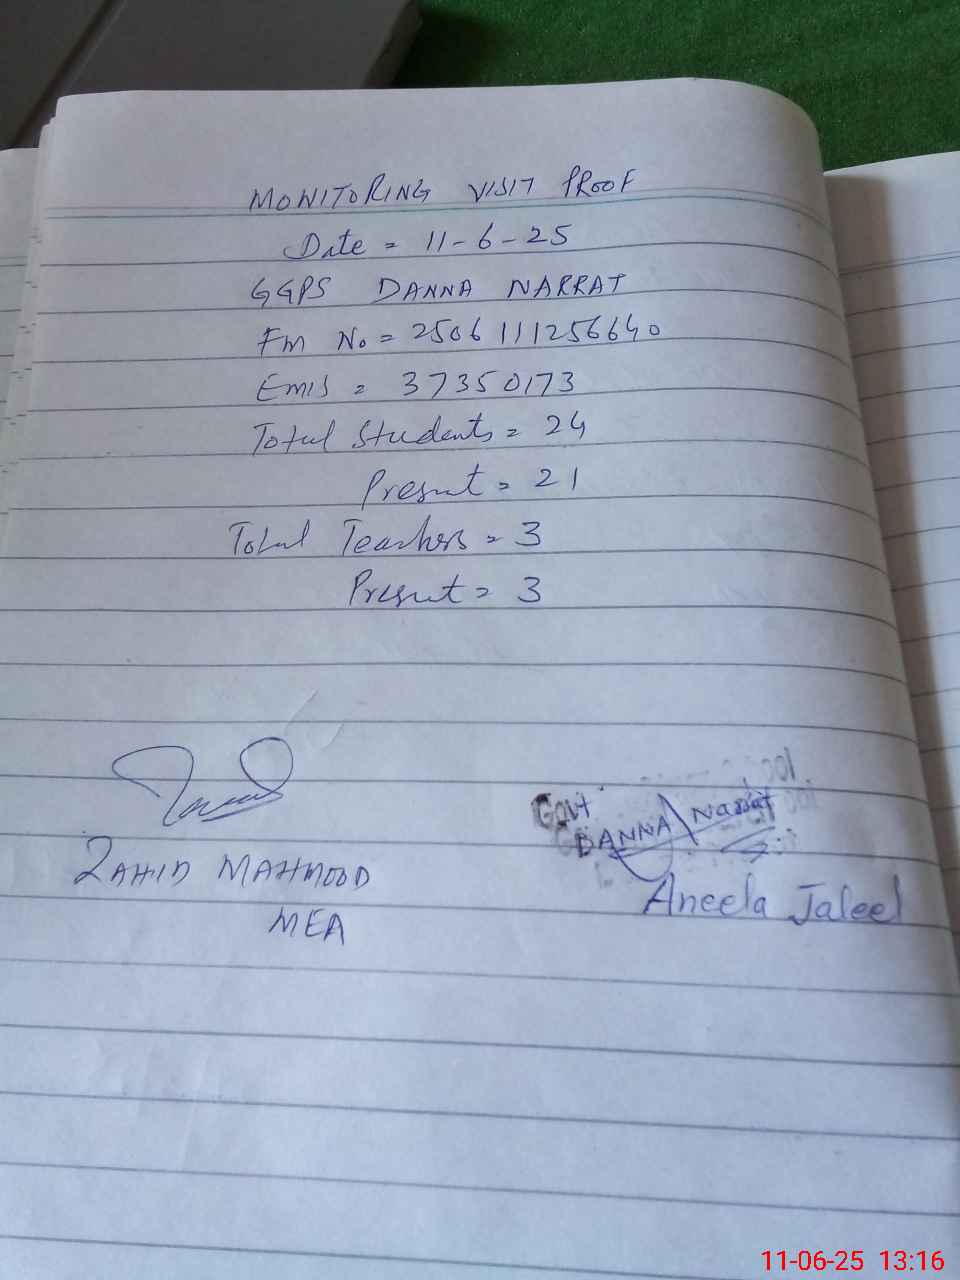 MONITORING VISIT PROOF
Date = 11-6-25
GGPS DANNA NARRAT
FM No = 2506111256640
Emis = 37350173
Total Students = 24
Present = 21
Total Teachers = 3
Present = 3
ZAHID MAHMOOD
MEA
Govt
DANNA Narrat
Aneela Jaleel
11-06-25 13:16